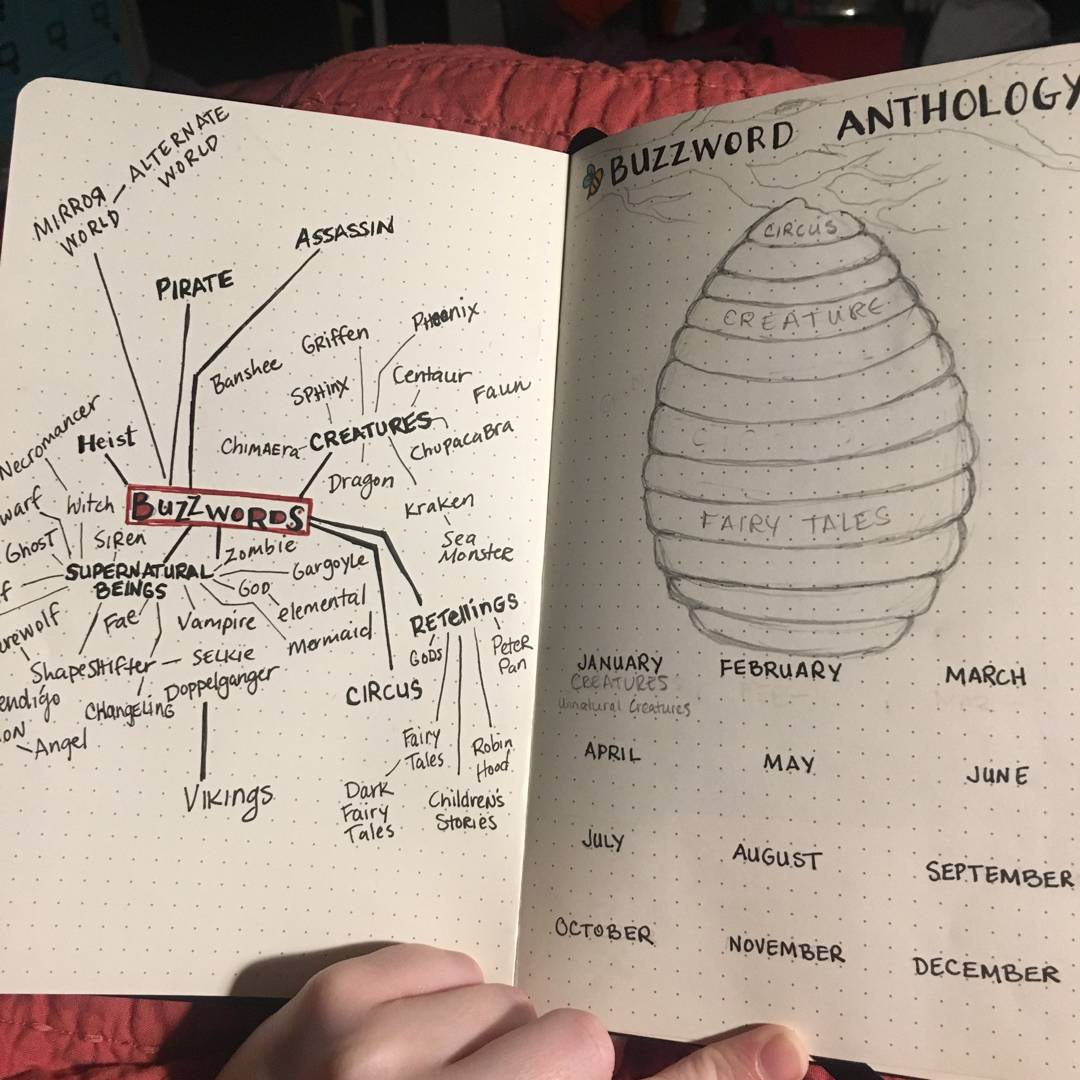 MIRROR
WORLD
ALTERNATE
WORLD
PIRATE
ASSASSIN
Heist
BUZZWORDS
CREATURES
Banshee
Griffen
Phoenix
SPHinx
Centaur
Faun
ChiMAEra
ChupacaBra
Dragon
Kraken
Sea
Monster
Necromancer
Witch
warf
Ghost
SiRen
SUPERNATURAL
BEINGS
Zombie
Gargoyle
GOD
elemental
Mermaid
Vampire
Fae
f
rewolf
ShapeShifter
SELKIE
Doppelganger
CHANGELING
endigo
ON
Angel
VIKINGS
CIRCUS
RETellings
GODS
Peter
Pan
Fairy
Tales
Robin
Hood
Dark
Fairy
Tales
Children's
Stories
BUZZWORD ANTHOLOGY
CIRCUS
CREATURE
FAIRY TALES
JANUARY
CREATURES
Unnatural Creatures
FEBRUARY
MARCH
APRIL
MAY
JUNE
JULY
AUGUST
SEPTEMBER
OCTOBER
NOVEMBER
DECEMBER